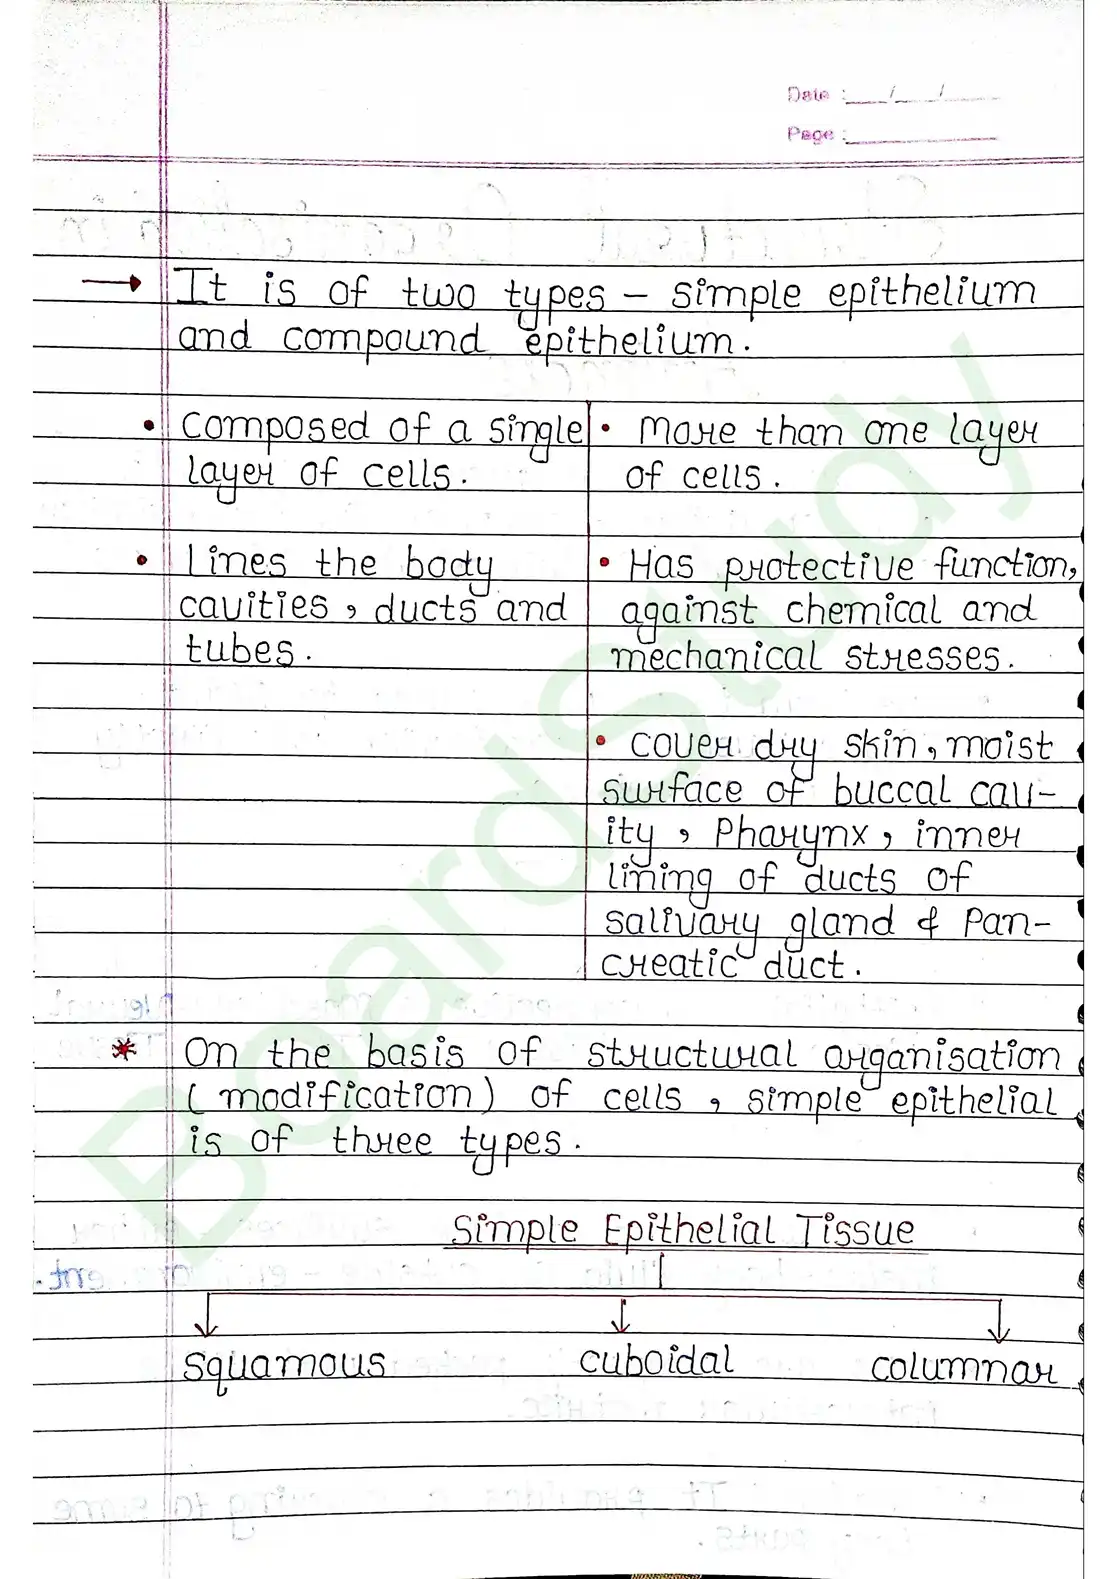 Date : / /
Page :
→ It is of two types – simple epithelium
and compound epithelium.
• composed of a single
layer of cells.
• Lines the body
cavities, ducts and
tubes.
• More than one layer
of cells.
• Has protective function,
against chemical and
mechanical stresses.
• cover dry skin, moist
surface of buccal cav-
ity, Pharynx, inner
lining of ducts of
salivary gland & Pan-
creatic duct.
* On the basis of structural organisation
(modification) of cells, simple epithelial
is of three types.
Simple Epithelial Tissue
squamous cuboidal columnar
BoardStudy